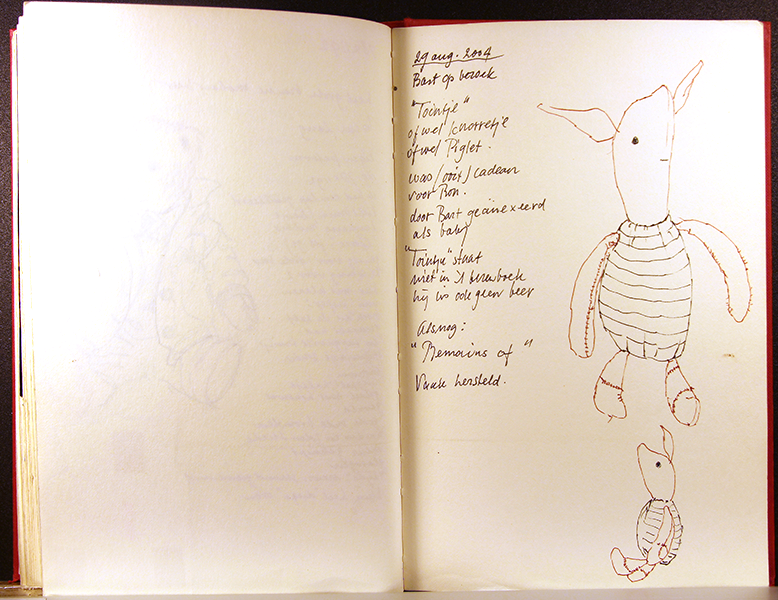 29 aug. 2004
Bart op bezoek
"Tointje"
ofwel Knorretje
ofwel Piglet.
was (ooit) cadeau
voor Ron.
door Bart geännexeerd
als baby
"Tointje" staat
niet in 't berenboek
hij is ook geen beer
Alsnog:
"Remains of"
Vaak hersteld.